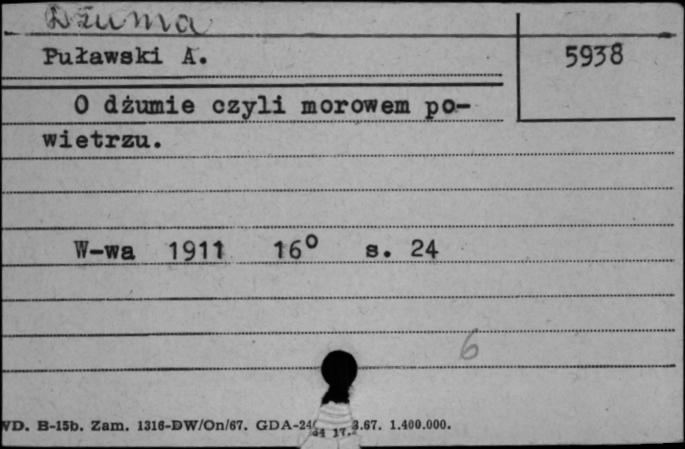 Dżuma
Puławski A.
5938
O dżumie czyli morowem po-
wietrzu.
W-wa 1911 16° s. 24
6
WD. B-15b. Zam. 1316-DW/On/67. GDA-24 3.67. 1.400.000.